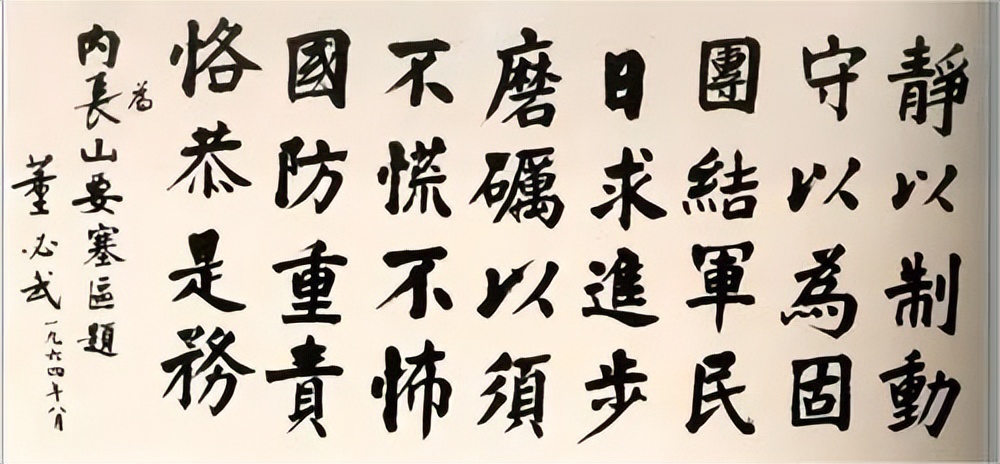 靜以制動
守以為固
團結軍民
日求進步
磨礪以須
不慌不怖
國防重責
恪恭是務
為
內長山要塞區題
董必武
一九六四年八月